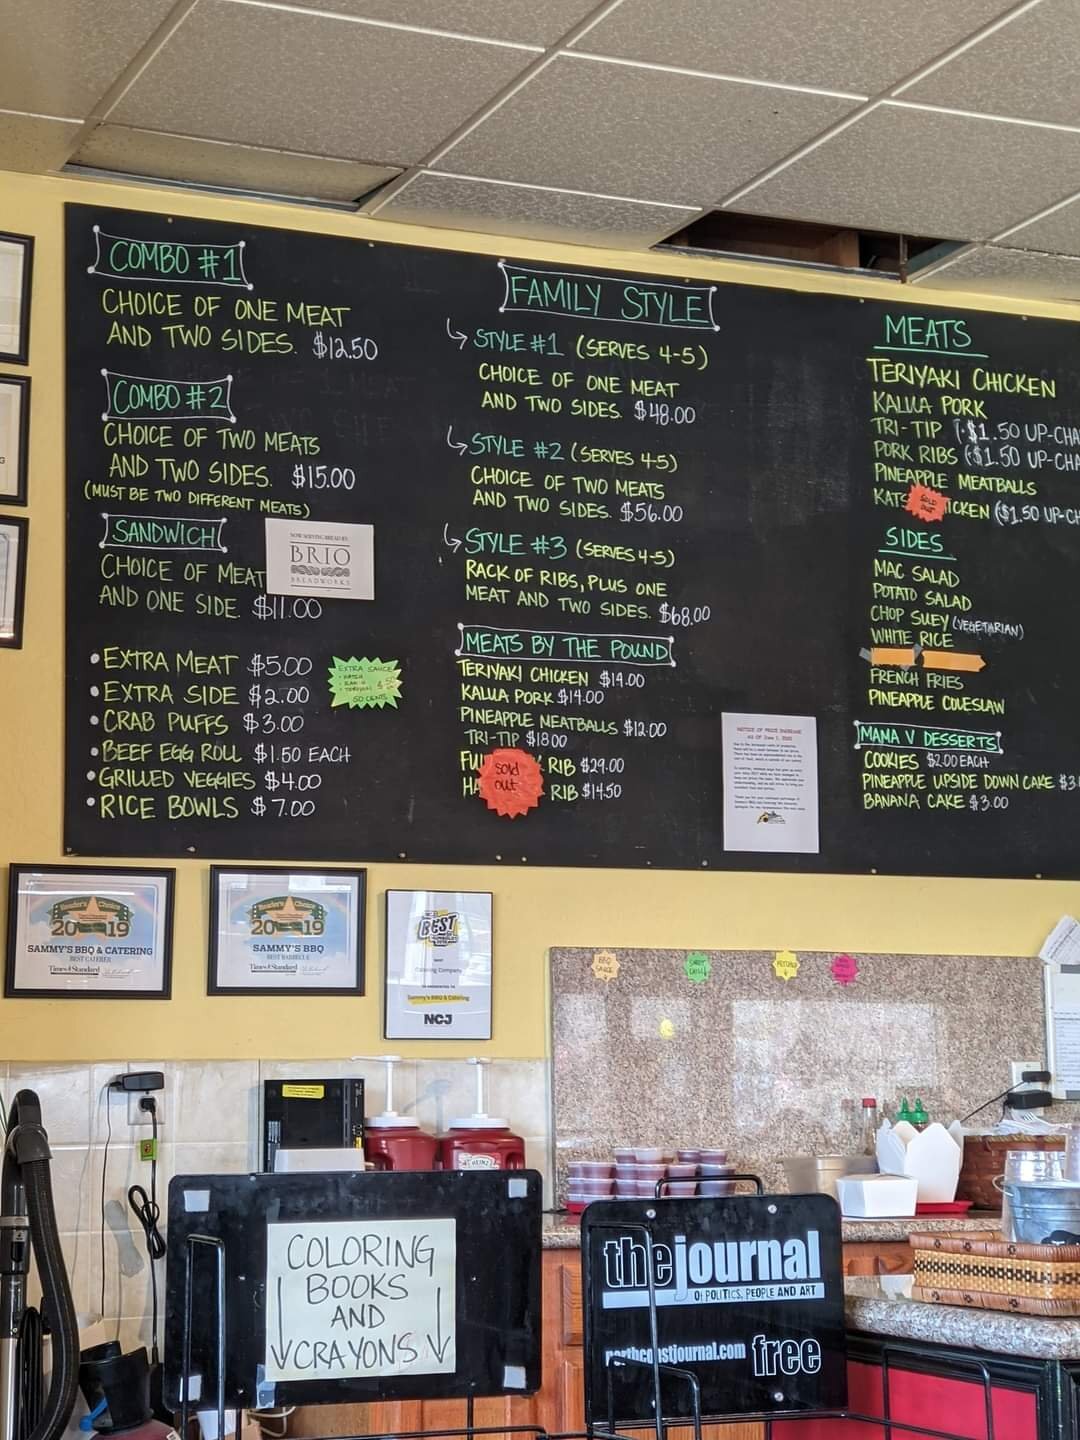 COMBO #1
CHOICE OF ONE MEAT
AND TWO SIDES. $12.50
COMBO #2
CHOICE OF TWO MEATS
AND TWO SIDES. $15.00
(MUST BE TWO DIFFERENT MEATS)
SANDWICH
CHOICE OF MEAT
AND ONE SIDE. $11.00
NOW SERVING BREAD BY
BRIO
BREADWORKS
• EXTRA MEAT $5.00
• EXTRA SIDE $2.00
• CRAB PUFFS $3.00
• BEEF EGG ROLL $1.50 EACH
• GRILLED VEGGIES $4.00
• RICE BOWLS $7.00
EXTRA SAUCE
50 CENTS
FAMILY STYLE
STYLE #1 (SERVES 4-5)
CHOICE OF ONE MEAT
AND TWO SIDES. $48.00
STYLE #2 (SERVES 4-5)
CHOICE OF TWO MEATS
AND TWO SIDES. $56.00
STYLE #3 (SERVES 4-5)
RACK OF RIBS, PLUS ONE
MEAT AND TWO SIDES. $68.00
MEATS BY THE POUND
TERIYAKI CHICKEN $14.00
KALUA PORK $14.00
PINEAPPLE MEATBALLS $12.00
TRI-TIP $18.00
FU RIB $29.00
HA RIB $14.50
Sold
out
NOTICE OF PRICE INCREASE
MEATS
TERIYAKI CHICKEN
KALUA PORK
TRI-TIP (+$1.50 UP-CHA
PORK RIBS (+$1.50 UP-CHA
PINEAPPLE MEATBALLS
KATS ICKEN (+$1.50 UP-CH
SOLD
OUT
SIDES
MAC SALAD
POTATO SALAD
CHOP SUEY (VEGETARIAN)
WHITE RICE
FRENCH FRIES
PINEAPPLE COLESLAW
MAMA V DESSERTS
COOKIES $2.00 EACH
PINEAPPLE UPSIDE DOWN CAKE $3.
BANANA CAKE $3.00
Reader's Choice
2019
SAMMY'S BBQ & CATERING
BEST CATERER
Times-Standard
Reader's Choice
2019
SAMMY'S BBQ
BEST BARBECUE
Times-Standard
BEST
Catering Company
Sammy's BBQ & Catering
NCJ
BBQ
SAUCE
KETCHUP
HEINZ
COLORING
BOOKS
AND
CRAYONS
the journal
OF POLITICS, PEOPLE AND ART
northcoastjournal.com free